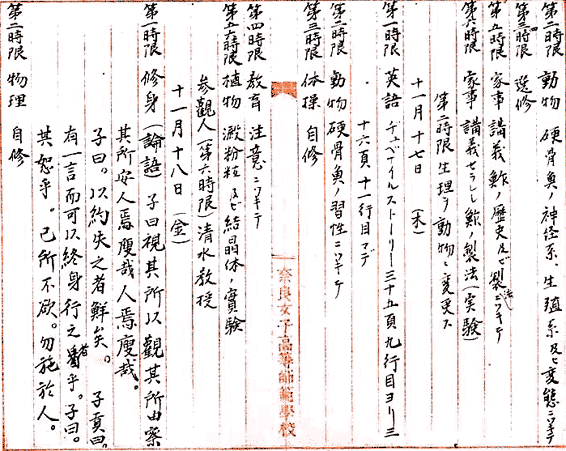 第二時限 動物 硬骨魚ノ神経系、生殖系及ビ変態ニツキテ
第三四時限 選修
第五時限 家事 講義 鮓ノ歴史及ビ製法ニツキテ
第六時限 家事 講義セラレシ鮓ノ製法(実験)
第二時限生理ヲ動物ト変更ス
十一月十七日 (木)
第一時限 英語 チュベナイルストーリー三十五頁九行目ヨリ三
十六頁十一行目マデ
第二時限 動物 硬骨魚ノ習性ニツキテ
第三時限 体操 自修
奈良女子高等師範學校
第四時限 教育 注意ニツキテ
第五六時限 植物 澱粉粒及ビ結晶体ノ實験
参觀人(第六時限)清水教授
十一月十八日 (金)
第一時限 修身(論語)子曰視其所以觀其所由察
其所安人焉廋哉人焉廋哉。
子曰。以約失之者鮮矣。 子貢曰。
有一言而可以終身行之者乎。子曰。
其恕乎。己所不欲。勿施於人。
第二時限 物理 自修